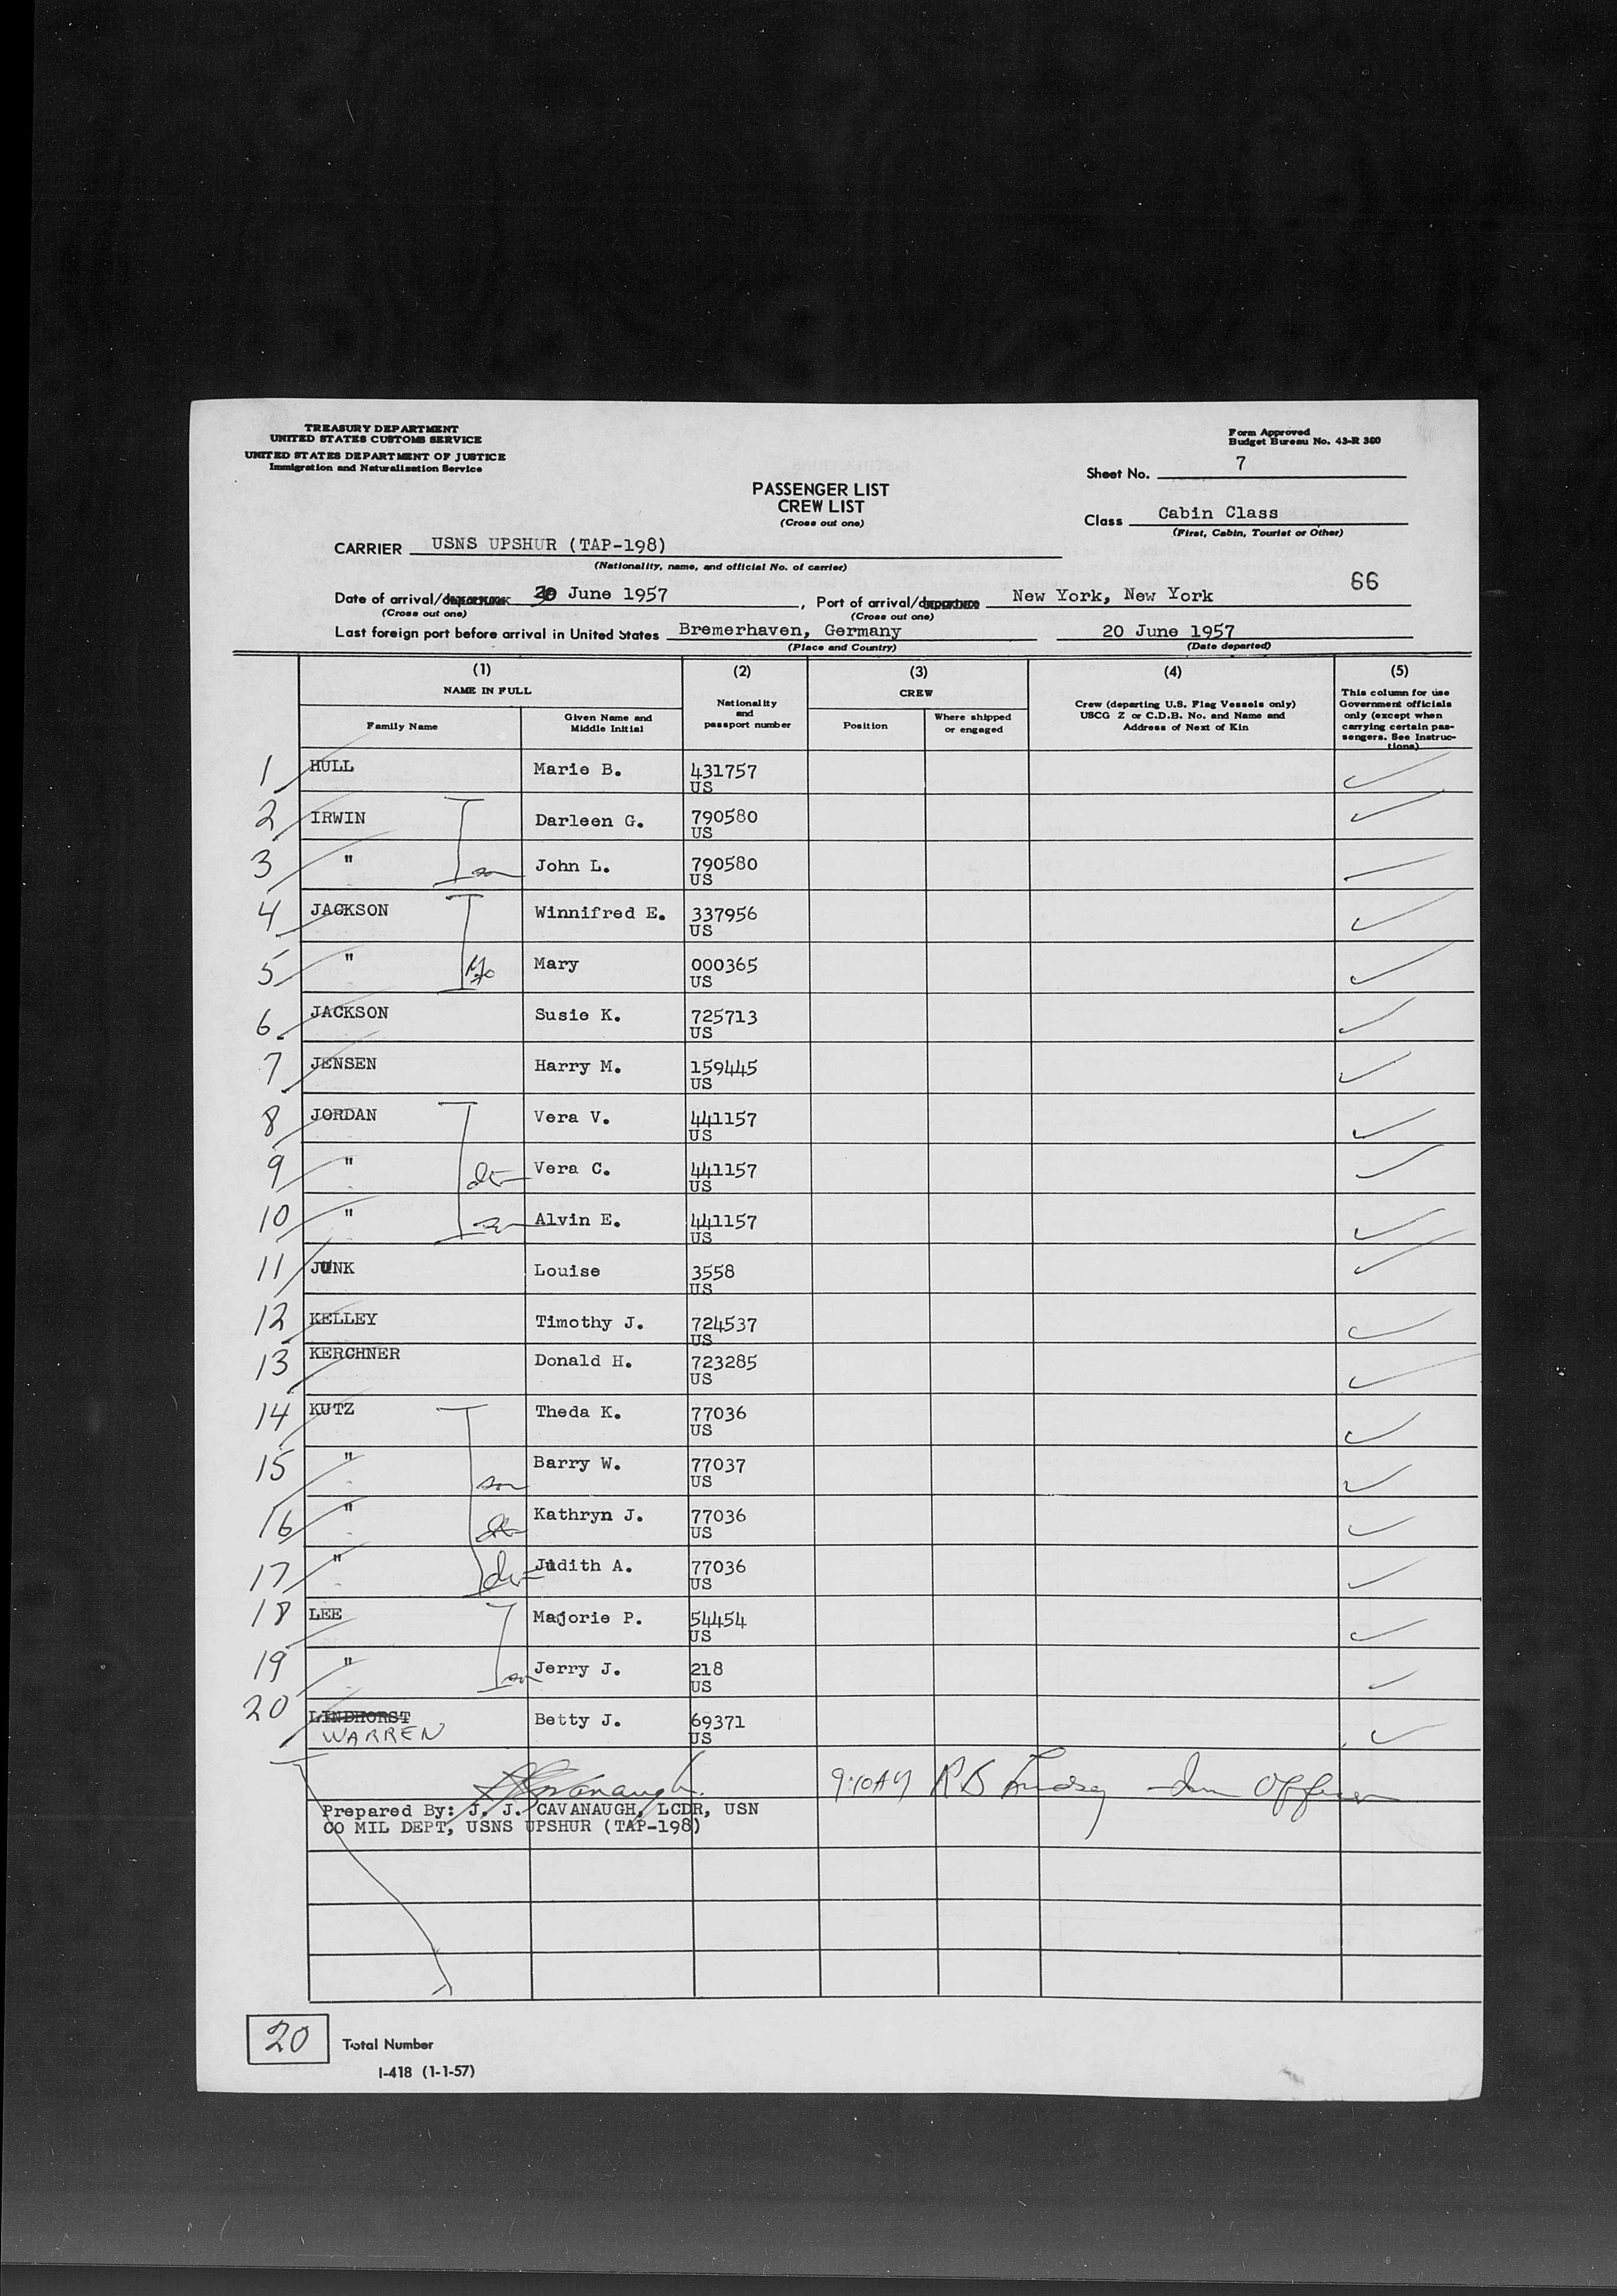 TREASURY DEPARTMENT
UNITED STATES CUSTOMS SERVICE
UNITED STATES DEPARTMENT OF JUSTICE
Immigration and Naturalization Service
Form Approved
Budget Bureau No. 43-R 380
Sheet No. 7
PASSENGER LIST
CREW LIST
(Cross out one)
Class Cabin Class
(First, Cabin, Tourist or Other)
CARRIER USNS UPSHUR (TAP-198)
(Nationality, name, and official No. of carrier)
66
Date of arrival/departure June 1957, Port of arrival/departure New York, New York
(Cross out one) (Cross out one)
Last foreign port before arrival in United States Bremerhaven, Germany 20 June 1957
(Place and Country) (Date departed)
(1) (2) (3) (4) (5)
NAME IN FULL
Family Name
Given Name and Middle Initial
Nationality and passport number
CREW
Position
Where shipped or engaged
Crew (departing U.S. Flag Vessels only)
USCG Z or C.D.B. No. and Name and
Address of Next of Kin
This column for use
Government officials
only (except when
carrying certain pas-
sengers. See Instruc-
tions)
1 HULL Marie B. 431757
US
2 IRWIN Darleen G. 790580
US
3 " son John L. 790580
US
4 JACKSON Winnifred E. 337956
US
5 " Mary 000365
US
6 JACKSON Susie K. 725713
US
7 JENSEN Harry M. 159445
US
8 JORDAN Vera V. 441157
US
9 " dtr Vera C. 441157
US
10 " son Alvin E. 441157
US
11 JUNK Louise 3558
US
12 KELLEY Timothy J. 724537
US
13 KERCHNER Donald H. 723285
US
14 KUTZ Theda K. 77036
US
15 " son Barry W. 77037
US
16 " dtr Kathryn J. 77036
US
17 " dtr Judith A. 77036
US
18 LEE Marjorie P. 54454
US
19 " son Jerry J. 218
US
20 LINDHORST Betty J. 69371
WARREN US
9:10AM R B Lindsey Imm Officer
Prepared By: J. J. CAVANAUGH, LCDR, USN
CO MIL DEPT, USNS UPSHUR (TAP-198)
20 Total Number
I-418 (1-1-57)